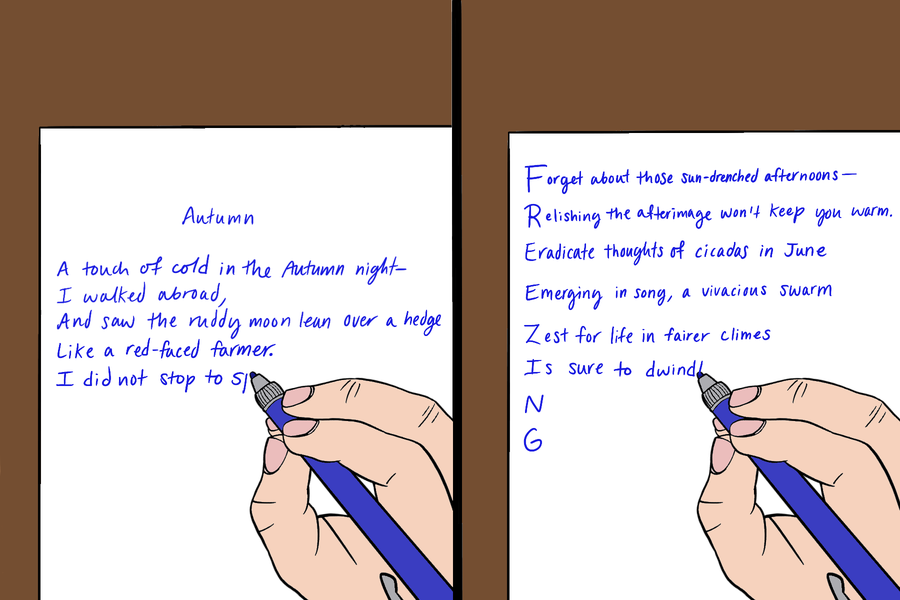 Autumn
A touch of cold in the Autumn night–
I walked abroad,
And saw the ruddy moon lean over a hedge
Like a red-faced farmer.
I did not stop to sp
Forget about those sun-drenched afternoons—
Relishing the afterimage won't keep you warm.
Eradicate thoughts of cicadas in June
Emerging in song, a vivacious swarm
Zest for life in fairer climes
Is sure to dwindl
N
G